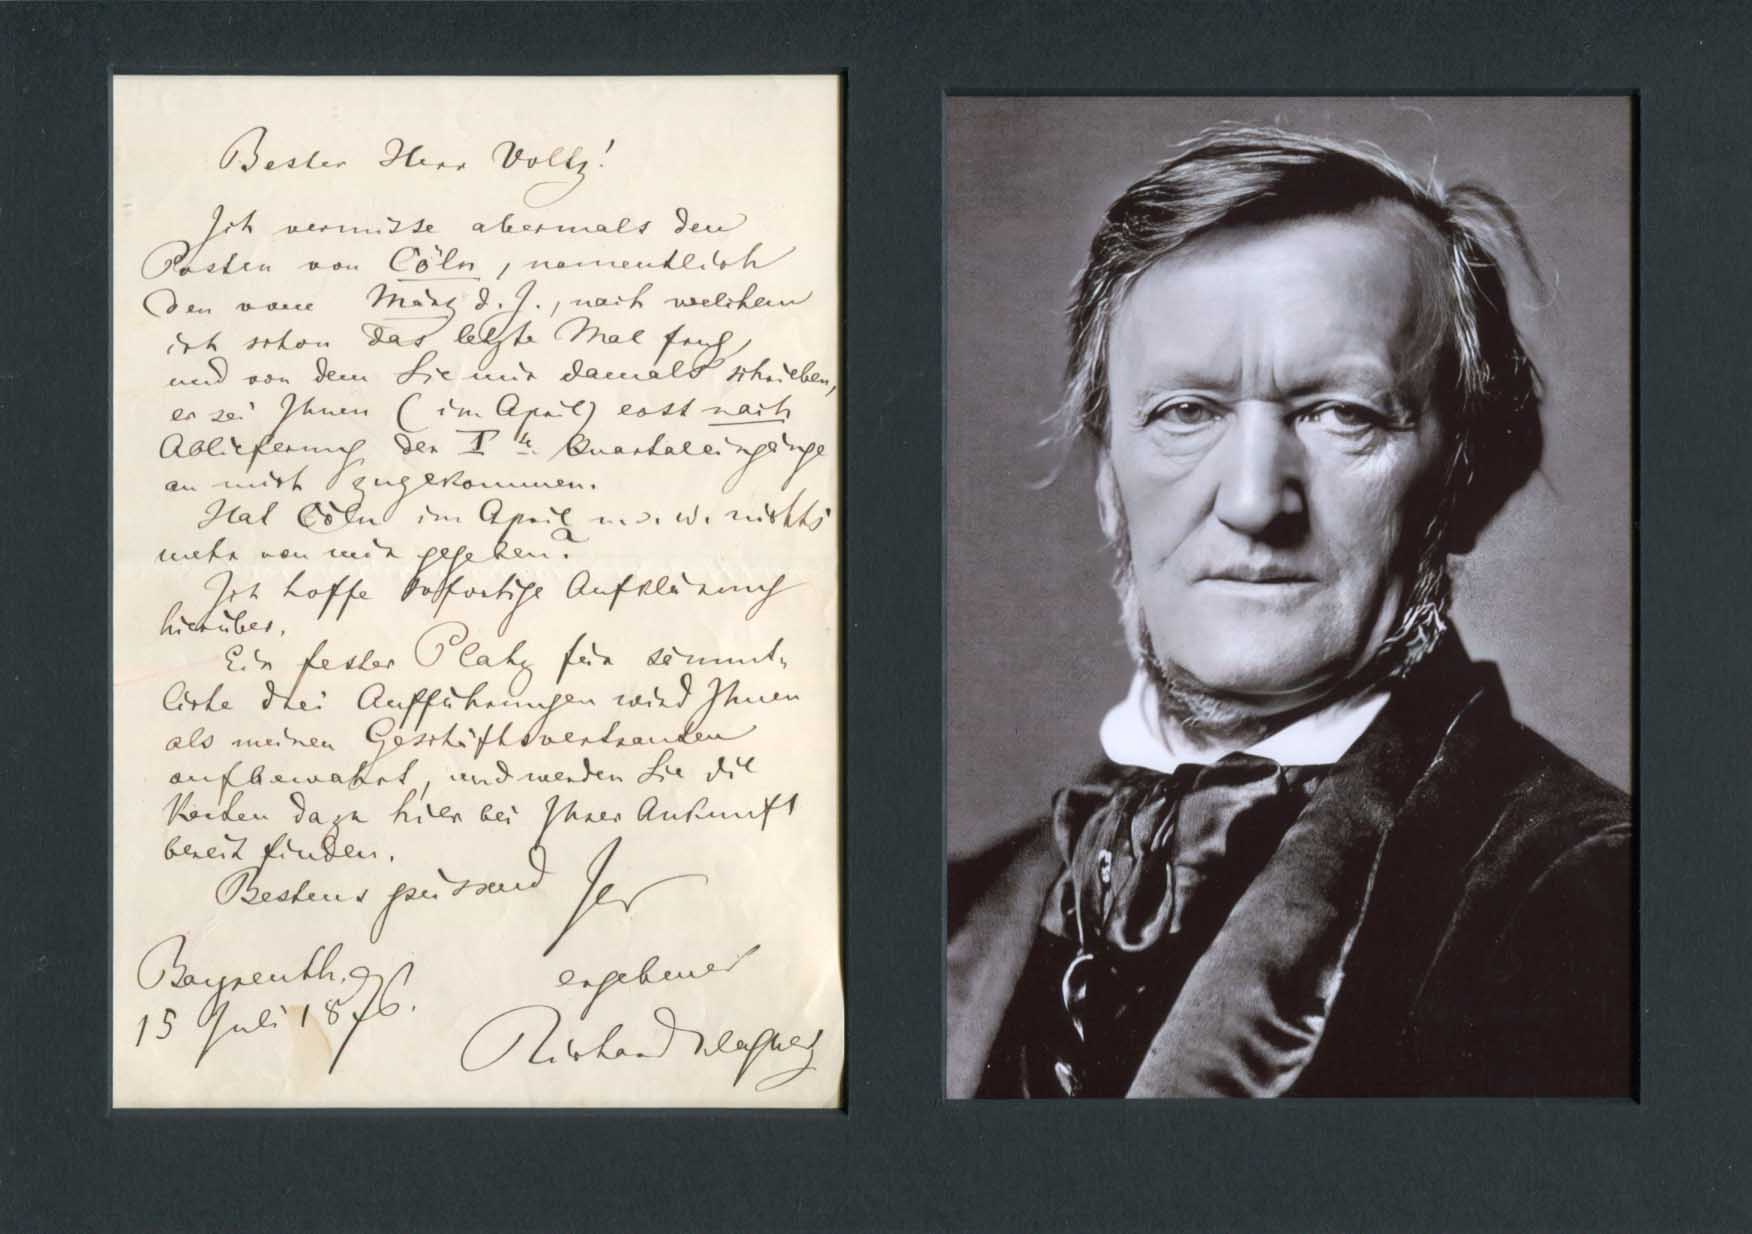 Bester Herr Voltz!
Ich vermisse abermals den
Posten von Cöln, namentlich
den vom März d. J., nach welchem
ich schon das letzte Mal frug,
und von dem Sie mir damals schrieben,
er sei Ihnen (im April) erst nach
Ablieferung der I ten Quartaleingänge
an mich zugekommen.
Hat Cöln im April u. s. w. nichts
mehr von mir gegeben?
Ich hoffe sofortige Aufklärung
hierüber.
Ein fester Platz für sämmt-
liche drei Aufführungen wird Ihnen
als meinen Geschäftsvertrauten
aufbewahrt, und werden Sie die
Karten dazu hier bei Ihrer Ankunft
bereit finden.
Bestens grüssend Ihr
Bayreuth. ergebener
15 Juli 1876. Richard Wagner